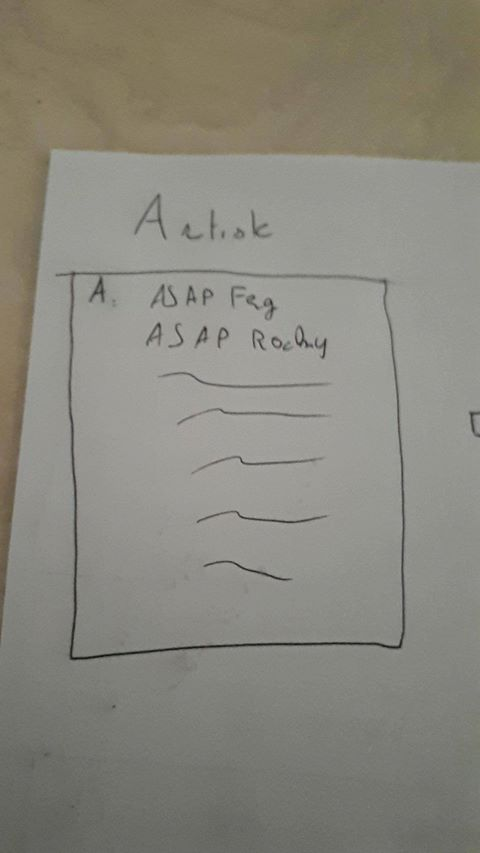 Artist
A. ASAP Ferg
ASAP Rocky